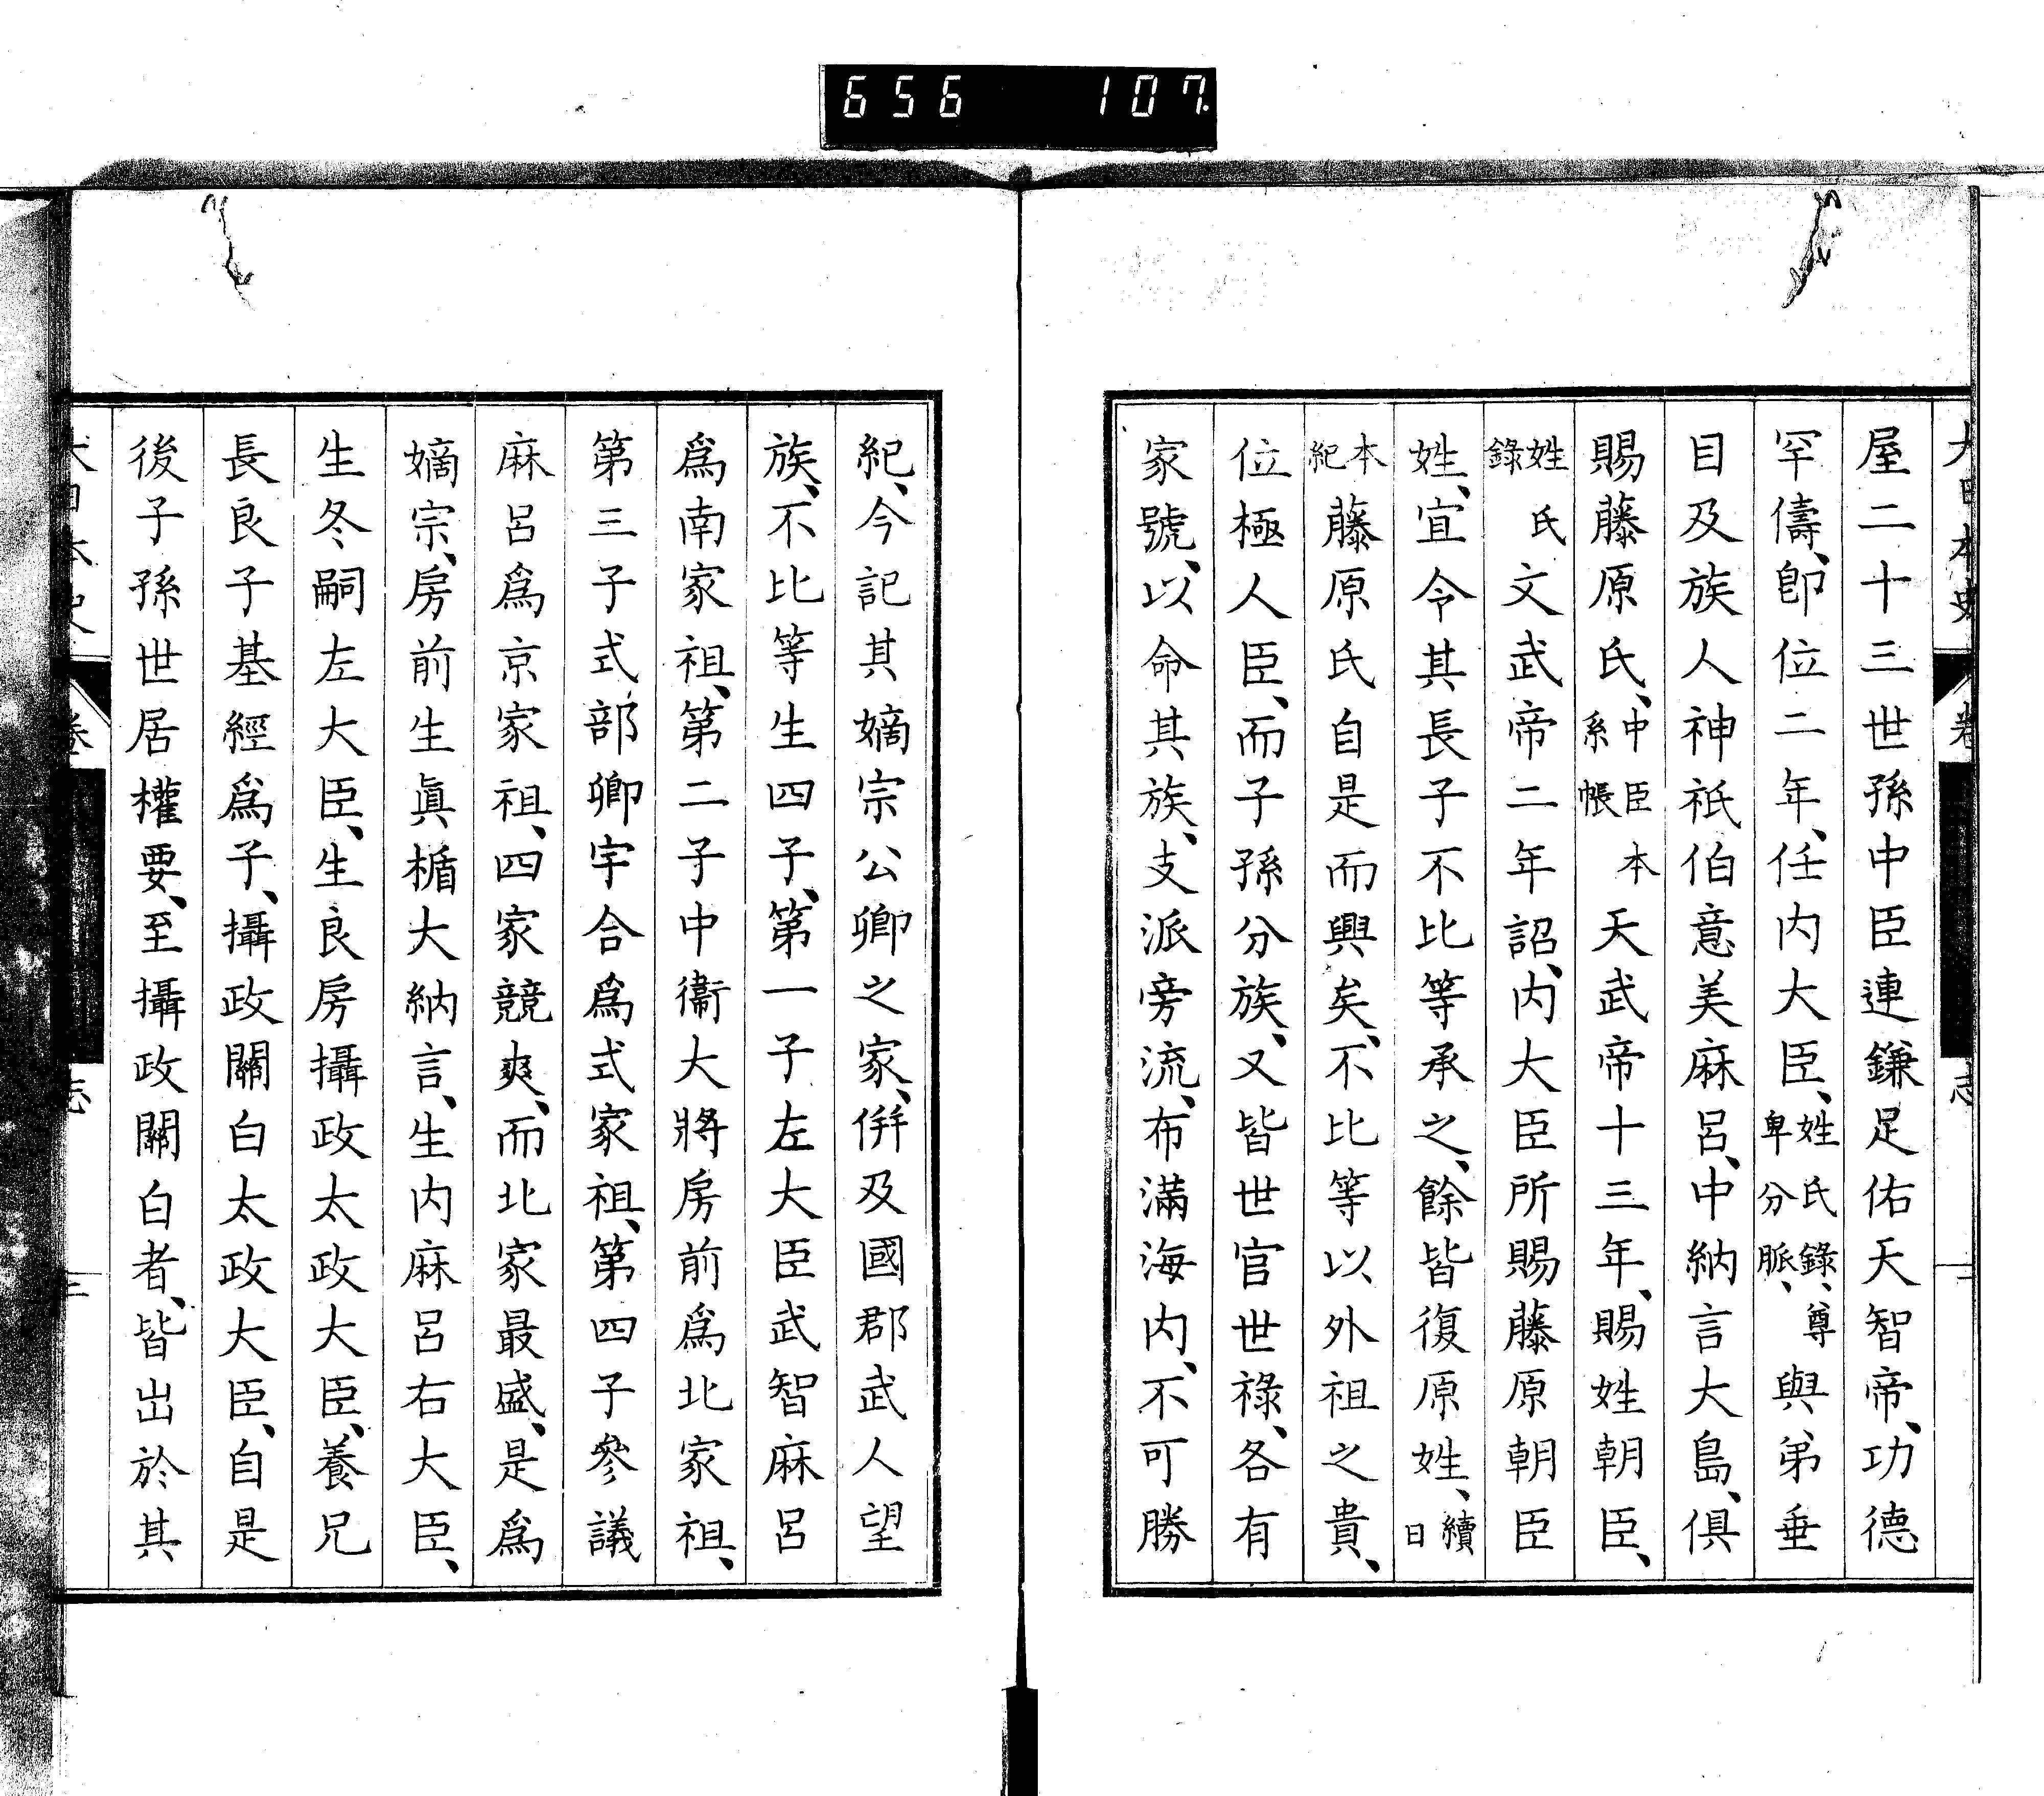 656 107
大日本史 卷 志 二
屋二十三世孫中臣連鎌足佑天智帝、功德
罕儔、卽位二年、任内大臣、姓氏錄、尊卑分脈、與弟垂
目及族人神祇伯意美麻呂、中納言大島、俱
賜藤原氏、中臣本系帳天武帝十三年、賜姓朝臣、
姓氏錄文武帝二年詔、内大臣所賜藤原朝臣
姓、宜令其長子不比等承之、餘皆復原姓、續日
本紀藤原氏自是而興矣、不比等以外祖之貴、
位極人臣、而子孫分族、又皆世官世祿、各有
家號、以命其族、支派旁流、布滿海内、不可勝
紀、今記其嫡宗公卿之家、併及國郡武人望
族、不比等生四子、第一子左大臣武智麻呂
爲南家祖、第二子中衞大將房前爲北家祖、
第三子式部卿宇合爲式家祖、第四子參議
麻呂爲京家祖、四家競爽、而北家最盛、是爲
嫡宗、房前生眞楯大納言、生内麻呂右大臣、
生冬嗣左大臣、生良房攝政太政大臣、養兄
長良子基經爲子、攝政關白太政大臣、自是
後子孫世居權要、至攝政關白者、皆出於其
大日本史 卷 志